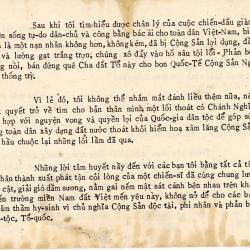 Sau khi tôi tìm hiểu được chân lý của cuộc chiến-đấu giàn
n sống tự-do dân-chủ và công bằng bác ái cho toàn dân Việt-Nam, bi
là một nạn nhân không hơn, không kém, đã bị Cộng Sản lợi dụng, đầ
và lường gạt trắng trợn, chúng xô đẩy vào hố sâu tội lỗi - Phản b
ng nòi, bán đứng quê Cha đất Tổ này cho bọn Quốc-Tế Cộng Sản Ng
thống trị.
Vì lẽ đó, tôi không thể nhắm mắt đánh liều thêm nữa, n
t quyết trở về tìm cho bản thân mình một lối thoát có Chánh Nghĩ
hợp với nguyện vọng và quyền lợi của Quốc-gia dân tộc để góp sứ
toàn dân xây dựng đất nước thoát khỏi hiểm hoạ xâm lăng Cộng Sả
hầu chuộc lại những lỗi lầm đã qua.
Những lời tâm huyết này đến với các bạn tôi bằng tất cả tấ
hân thành xuất phát tận cõi lòng của một chiến-sĩ đã cùng chung lưn
cật, giải gió dầm sương, nằm gai nếm mật sát cánh bên nhau trên khắ
trường miền Nam đất Việt mến yêu này, không nỡ để cho các bạ
thân hy-sinh vì chủ nghĩa Cộng Sản độc tài, phi nhân và phản bộ
-tộc, Tổ-quốc.